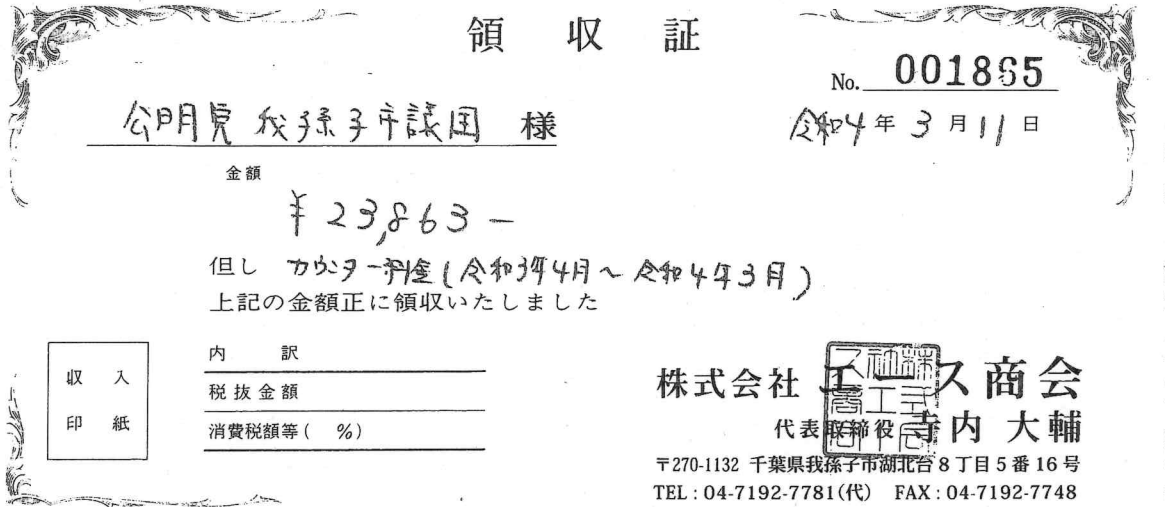 領収証
No. 001865
公明党 我孫子市議団 様
令和4年3月11日
金額
¥23,863-
但し カウンター料金(令和3年4月~令和4年3月)
上記の金額正に領収いたしました
収入
印紙
内訳
税抜金額
消費税額等( %)
株式会社 エース商会
代表取締役 寺内 大輔
〒270-1132 千葉県我孫子市湖北台8丁目5番16号
TEL:04-7192-7781(代) FAX:04-7192-7748